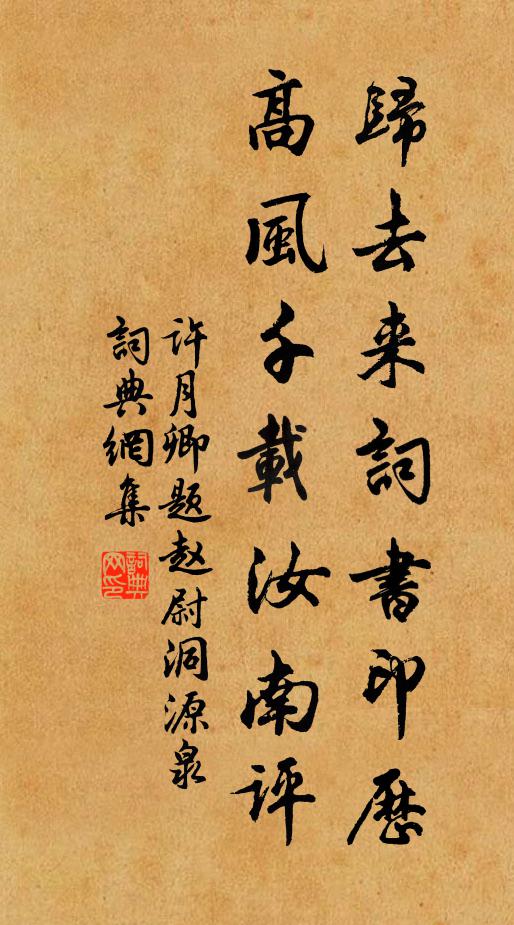 歸去来詞書印歷
高風千載汝南評
许月卿题赵尉洞源泉
詞典網集
詞典网印